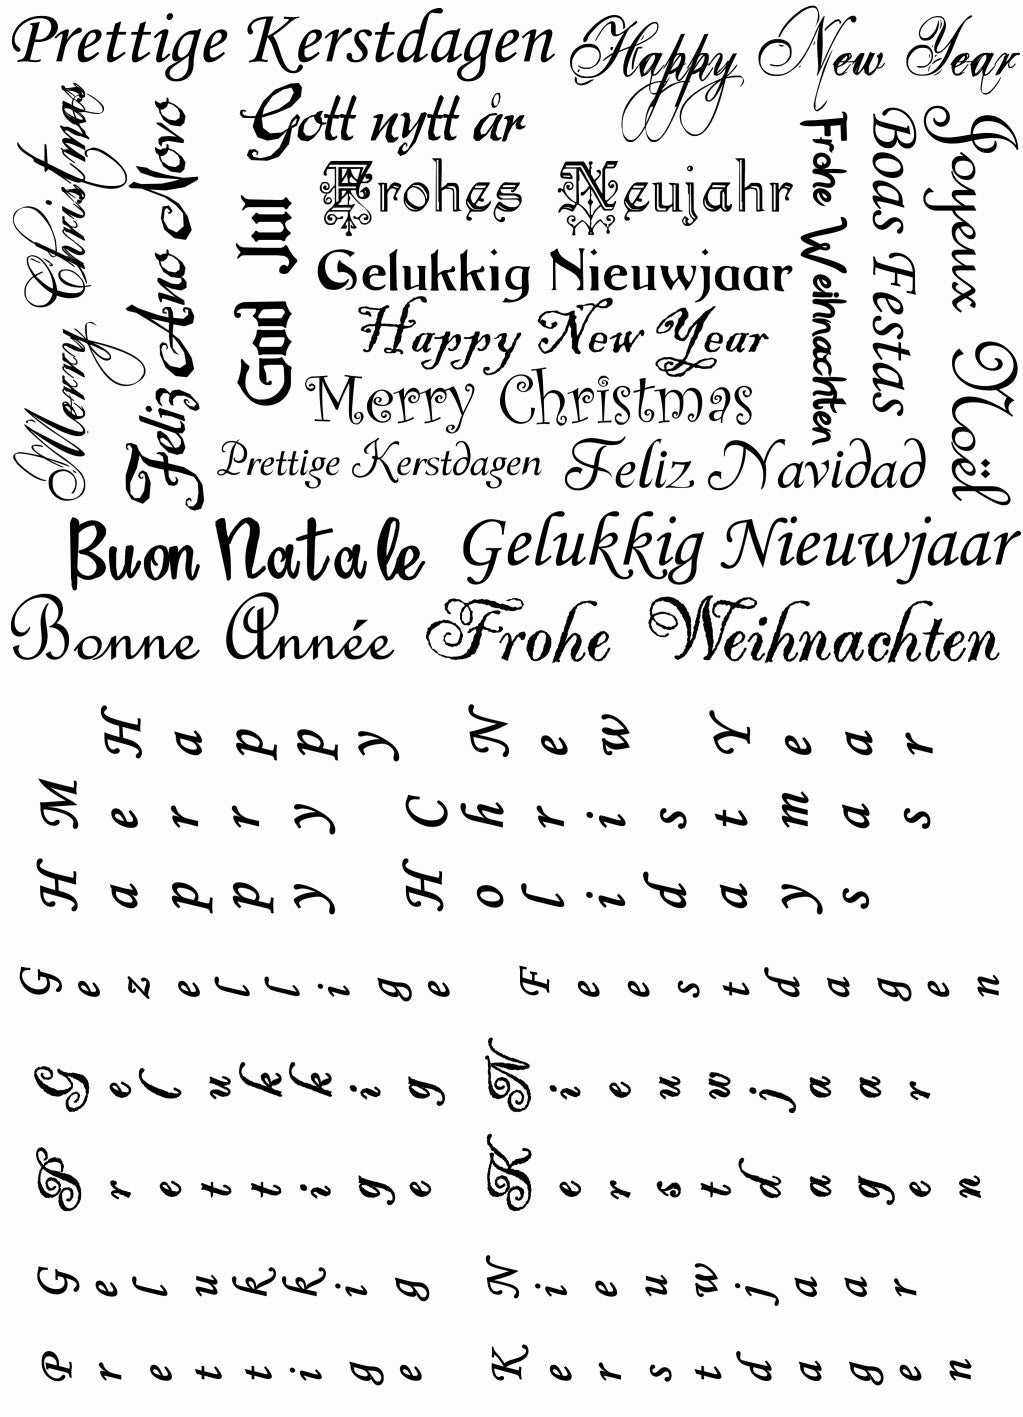 Prettige Kerstdagen
Happy New Year
Merry Christmas
Feliz Ano Novo
Gott nytt år
God Jul
Frohes Neujahr
Gelukkig Nieuwjaar
Happy New Year
Merry Christmas
Frohe Weihnachten
Boas Festas
Joyeux Noël
Prettige Kerstdagen
Feliz Navidad
Buon Natale
Gelukkig Nieuwjaar
Bonne Année
Frohe Weihnachten
Happy New Year
Merry Christmas
Happy Holidays
Gezellige Feestdagen
Gelukkig Nieuwjaar
Prettige Kerstdagen
Gelukkig Nieuwjaar
Prettige Kerstdagen